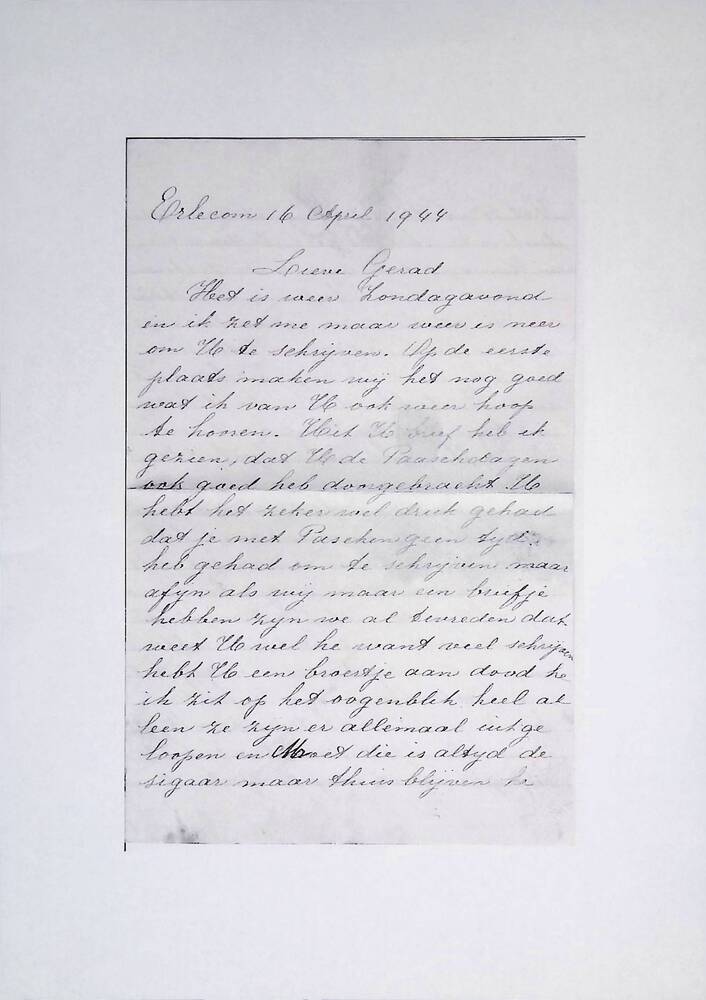 Erlecom 16 April 1944
Lieve Gerad
Het is weer Zondagavond
en ik zet me maar weer is neer
om U te schrijven. Op de eerste
plaats maken wij het nog goed
wat ik van U ook weer hoop
te hooren. Uit U brief heb ik
gezien, dat U de Paaschdagen
ook goed heb doorgebracht. U
hebt het zeker wel druk gehad
dat je met Paschen geen tyd
heb gehad om te schrijven maar
afyn als wij maar een briefje
hebben zyn we al tevreden dat
weet U wel he want veel schrijven
hebt U een broertje aan dood he
ik zit op het oogenblik heel al
leen ze zyn er allemaal uit ge
loopen en Moet die is altyd de
sigaar maar thuis blijven he